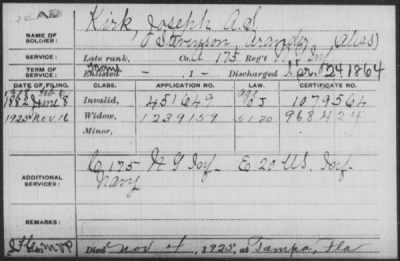 Kirk, Joseph A. S.
NAME OF SOLDIER: Stevenson, (alias)
SERVICE: Late rank, Co. 175 Reg't N.Y. Inf
TERM OF SERVICE: Enlisted - , 1 - Discharged 24 1864
DATE OF FILING. CLASS. APPLICATION NO. LAW. CERTIFICATE NO.
1882 June 8 Invalid, 451649 1079564
1925 Nov. 16 Widow, 1239159 5-1-20 968424
Minor,
ADDITIONAL SERVICES: C 175 N Y Inf. E 20 U.S. Inf.
Navy
REMARKS:
Died Nov 4, 1925, at Tampa, Fla